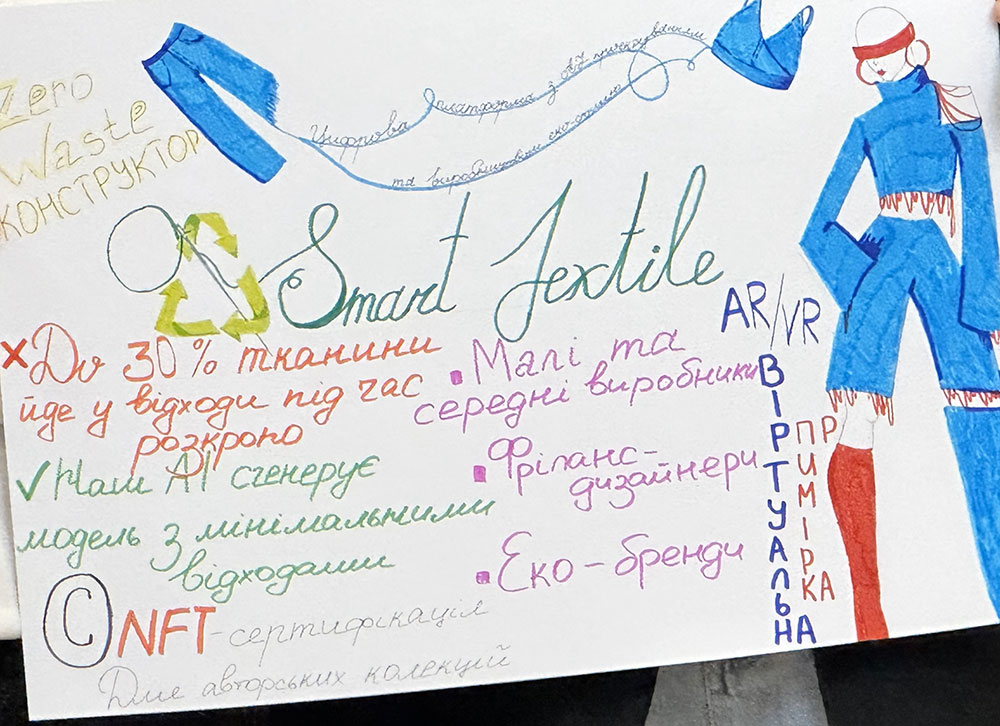 Zero
Waste
КОНСТРУКТОР
Цифрова платформа з AI проєктуванням
та виробництвом еко-стилю
Smart Textile
AR/VR
ВІРТУАЛЬНА
ПРИМІРКА
× До 30% тканини
йде у відходи під час
розкрою
✓ Наш AI згенерує
модель з мінімальними
відходами
▪ Малі та
середні виробники
▪ Фріланс-
дизайнери
▪ Еко-бренди
© NFT-сертифікація
Для авторських колекцій